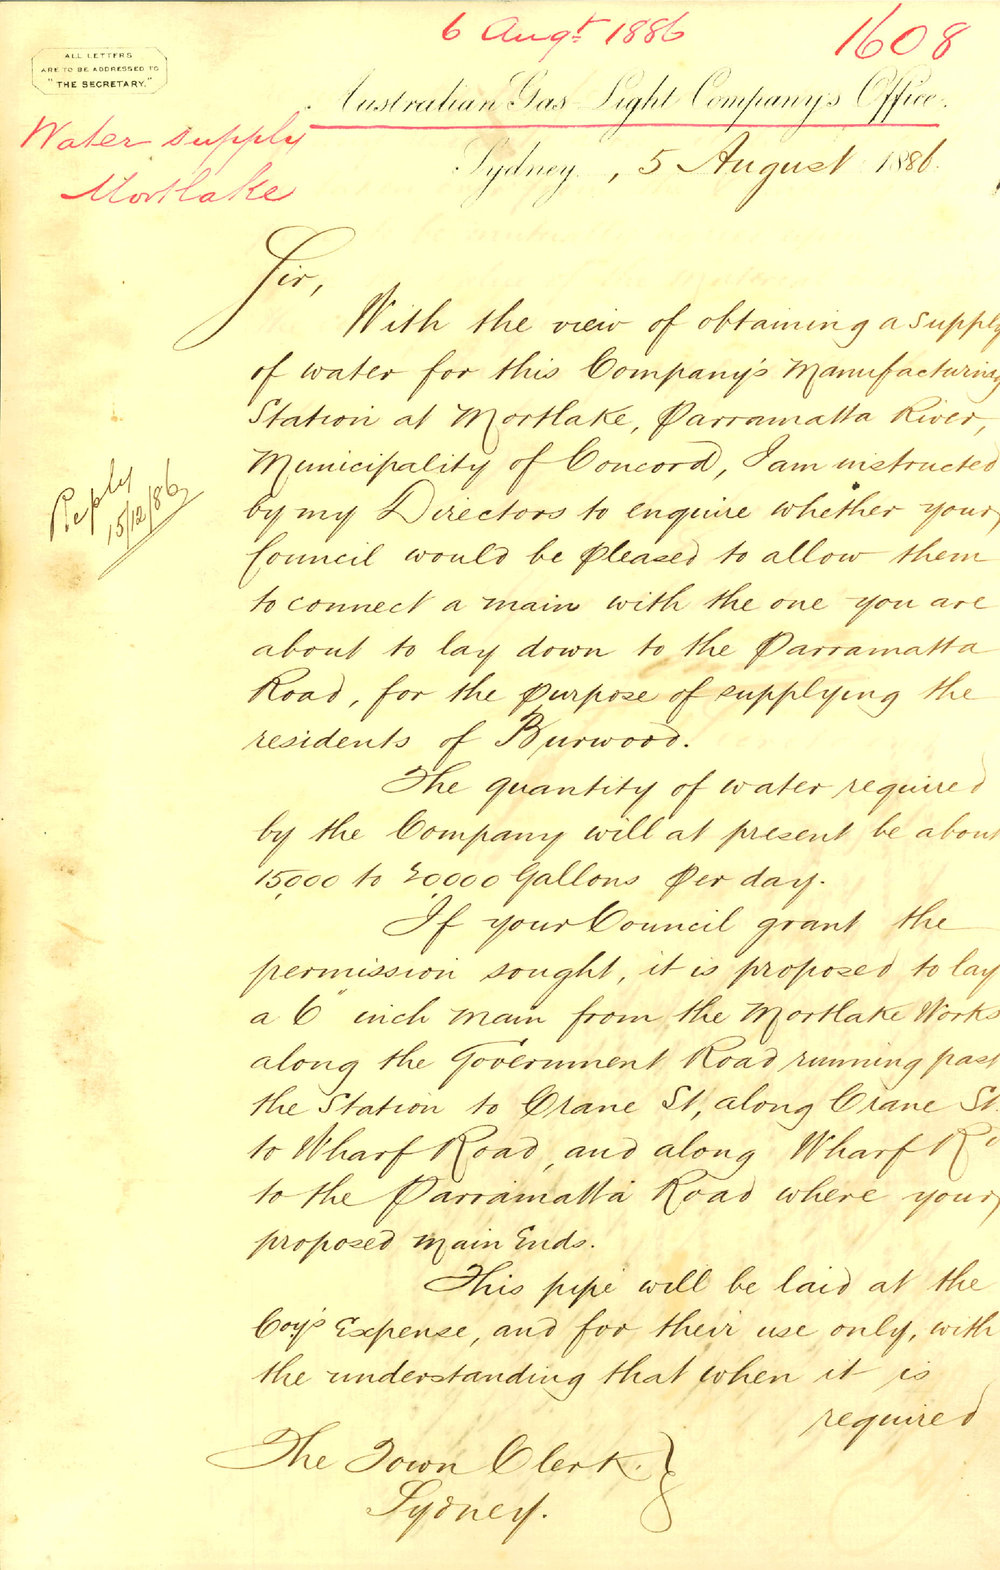 6 Augt 1886
1608
ALL LETTERS
ARE TO BE ADDRESSED TO
"THE SECRETARY."
Australian Gas Light Company's Office.
Water supply
Mortlake
Sydney, 5 August 1886.
Sir,
With the view of obtaining a supply
of water for this Company's Manufacturing
Station at Mortlake, Parramatta River,
Municipality of Concord, I am instructed
by my Directors to enquire whether your
Council would be pleased to allow them
to connect a main with the one you are
about to lay down to the Parramatta
Road, for the purpose of supplying the
residents of Burwood.
Reply
15/12/86
The quantity of water required
by the Company will at present be about
15,000 to 20,000 Gallons per day.
If your Council grant the
permission sought, it is proposed to lay
a 6" inch main from the Mortlake Works
along the Government Road running past
the Station to Crane St, along Crane St.
to Wharf Road, and along Wharf Rd
to the Parramatta Road where your
proposed main Ends.
This pipe will be laid at the
Coy's Expense, and for their use only, with
the understanding that when it is
required
The Town Clerk.
Sydney.